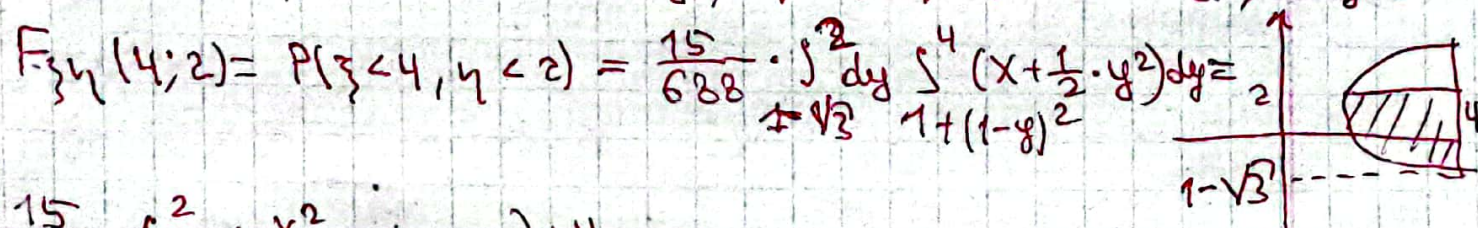 F_{ξη}(4;2) = P(ξ<4, η<2) = \frac{15}{688} · ∫_{1-√3}^{2} dy ∫_{1+(1-y)^2}^{4} (x + \frac{1}{2} · y^2) dy =
2
4
1-√3
15 2 x^2